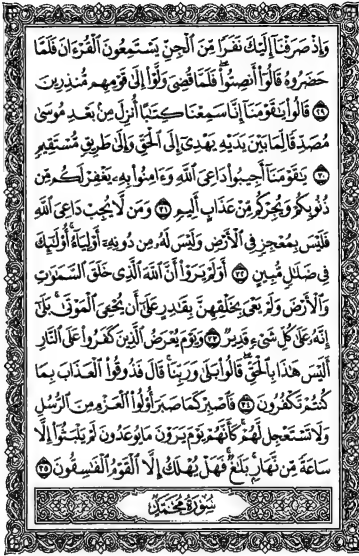 وَإِذْ صَرَفْنَآ إِلَيْكَ نَفَرًا مِّنَ ٱلْجِنِّ يَسْتَمِعُونَ ٱلْقُرْءَانَ فَلَمَّا
حَضَرُوهُ قَالُوٓا۟ أَنصِتُوا۟ ۖ فَلَمَّا قُضِىَ وَلَّوْا۟ إِلَىٰ قَوْمِهِم مُّنذِرِينَ
﴿٢٩﴾ قَالُوا۟ يَٰقَوْمَنَآ إِنَّا سَمِعْنَا كِتَٰبًا أُنزِلَ مِنۢ بَعْدِ مُوسَىٰ
مُصَدِّقًا لِّمَا بَيْنَ يَدَيْهِ يَهْدِىٓ إِلَى ٱلْحَقِّ وَإِلَىٰ طَرِيقٍ مُّسْتَقِيمٍ
﴿٣٠﴾ يَٰقَوْمَنَآ أَجِيبُوا۟ دَاعِىَ ٱللَّهِ وَءَامِنُوا۟ بِهِۦ يَغْفِرْ لَكُم مِّن
ذُنُوبِكُمْ وَيُجِرْكُم مِّنْ عَذَابٍ أَلِيمٍ ﴿٣١﴾ وَمَن لَّا يُجِبْ دَاعِىَ ٱللَّهِ
فَلَيْسَ بِمُعْجِزٍ فِى ٱلْأَرْضِ وَلَيْسَ لَهُۥ مِن دُونِهِۦٓ أَوْلِيَآءُ ۚ أُو۟لَٰٓئِكَ
فِى ضَلَٰلٍ مُّبِينٍ ﴿٣٢﴾ أَوَلَمْ يَرَوْا۟ أَنَّ ٱللَّهَ ٱلَّذِى خَلَقَ ٱلسَّمَٰوَٰتِ
وَٱلْأَرْضَ وَلَمْ يَعْىَ بِخَلْقِهِنَّ بِقَٰدِرٍ عَلَىٰٓ أَن يُحْـِۧىَ ٱلْمَوْتَىٰ ۚ بَلَىٰٓ
إِنَّهُۥ عَلَىٰ كُلِّ شَىْءٍ قَدِيرٌ ﴿٣٣﴾ وَيَوْمَ يُعْرَضُ ٱلَّذِينَ كَفَرُوا۟ عَلَى ٱلنَّارِ
أَلَيْسَ هَٰذَا بِٱلْحَقِّ ۖ قَالُوا۟ بَلَىٰ وَرَبِّنَا ۚ قَالَ فَذُوقُوا۟ ٱلْعَذَابَ بِمَا
كُنتُمْ تَكْفُرُونَ ﴿٣٤﴾ فَٱصْبِرْ كَمَا صَبَرَ أُو۟لُوا۟ ٱلْعَزْمِ مِنَ ٱلرُّسُلِ
وَلَا تَسْتَعْجِل لَّهُمْ ۚ كَأَنَّهُمْ يَوْمَ يَرَوْنَ مَا يُوعَدُونَ لَمْ يَلْبَثُوٓا۟ إِلَّا
سَاعَةً مِّن نَّهَارٍۭ ۚ بَلَٰغٌ ۚ فَهَلْ يُهْلَكُ إِلَّا ٱلْقَوْمُ ٱلْفَٰسِقُونَ ﴿٣٥﴾
سُورَةُ مُحَمَّدٍ